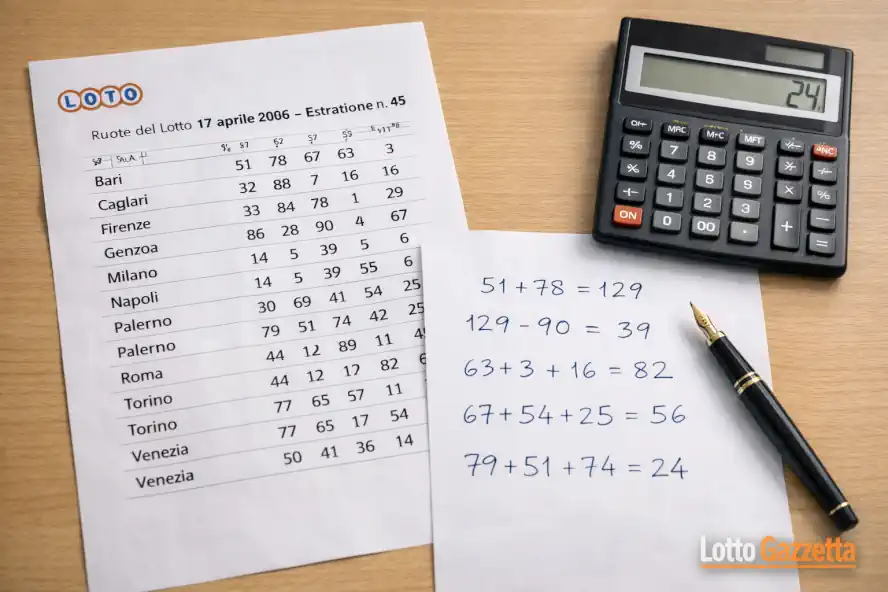 LOTO
Ruote del Lotto 17 aprile 2006 – Estratione n. 45
Bari 51 78 67 63 3
Caglari 32 88 7 16 16
Firenze 33 84 78 1 29
Genzoa 86 28 90 4 67
Milano 14 5 39 5 6
Napoli 14 5 39 55 6
Palerno 30 69 41 54 25
Palerno 79 51 74 42 25
Roma 44 12 89 11
Torino 44 12 17 82
Torino 77 65 57 11
Venezia 77 65 17 54
Venezia 50 41 36 14
51 + 78 = 129
129 – 90 = 39
63 + 3 + 16 = 82
67 + 54 + 25 = 56
79 + 51 + 74 = 24
24
MRC M+C MFT ANC
% 7 8 9
% 4 6 6 × %
+– 1 2 3 + –
ON 0 00 . =
Lotto Gazzetta